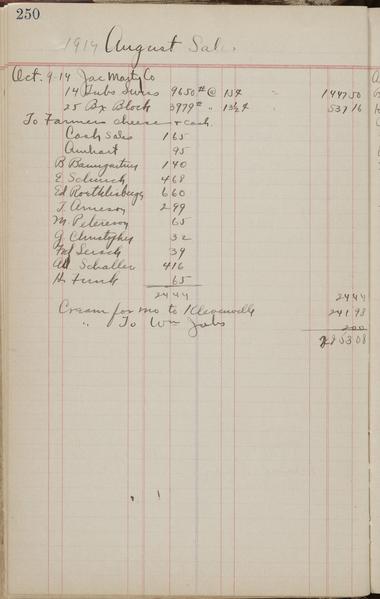 250
1914 August Sales
Oct. 9-14 Jac Marty Co
14 Tubs Swiss 9650# @ 15¢ " 144750
25 Bx Block 3979# " 13½¢ " 53716
To Farmers cheese + cash
Cash Sales 165
Amhart 95
B Baumgartner 140
E. Schurch 468
Ed Roethlisberger 660
F. Arneson 299
M. Peterson 65
G. Christopher 32
Fred 39
Alb Schaller 416
H. Funk 65
2444 2444
Cream for mo to Klevenville 24198
" To Wm Jobs 200
225308